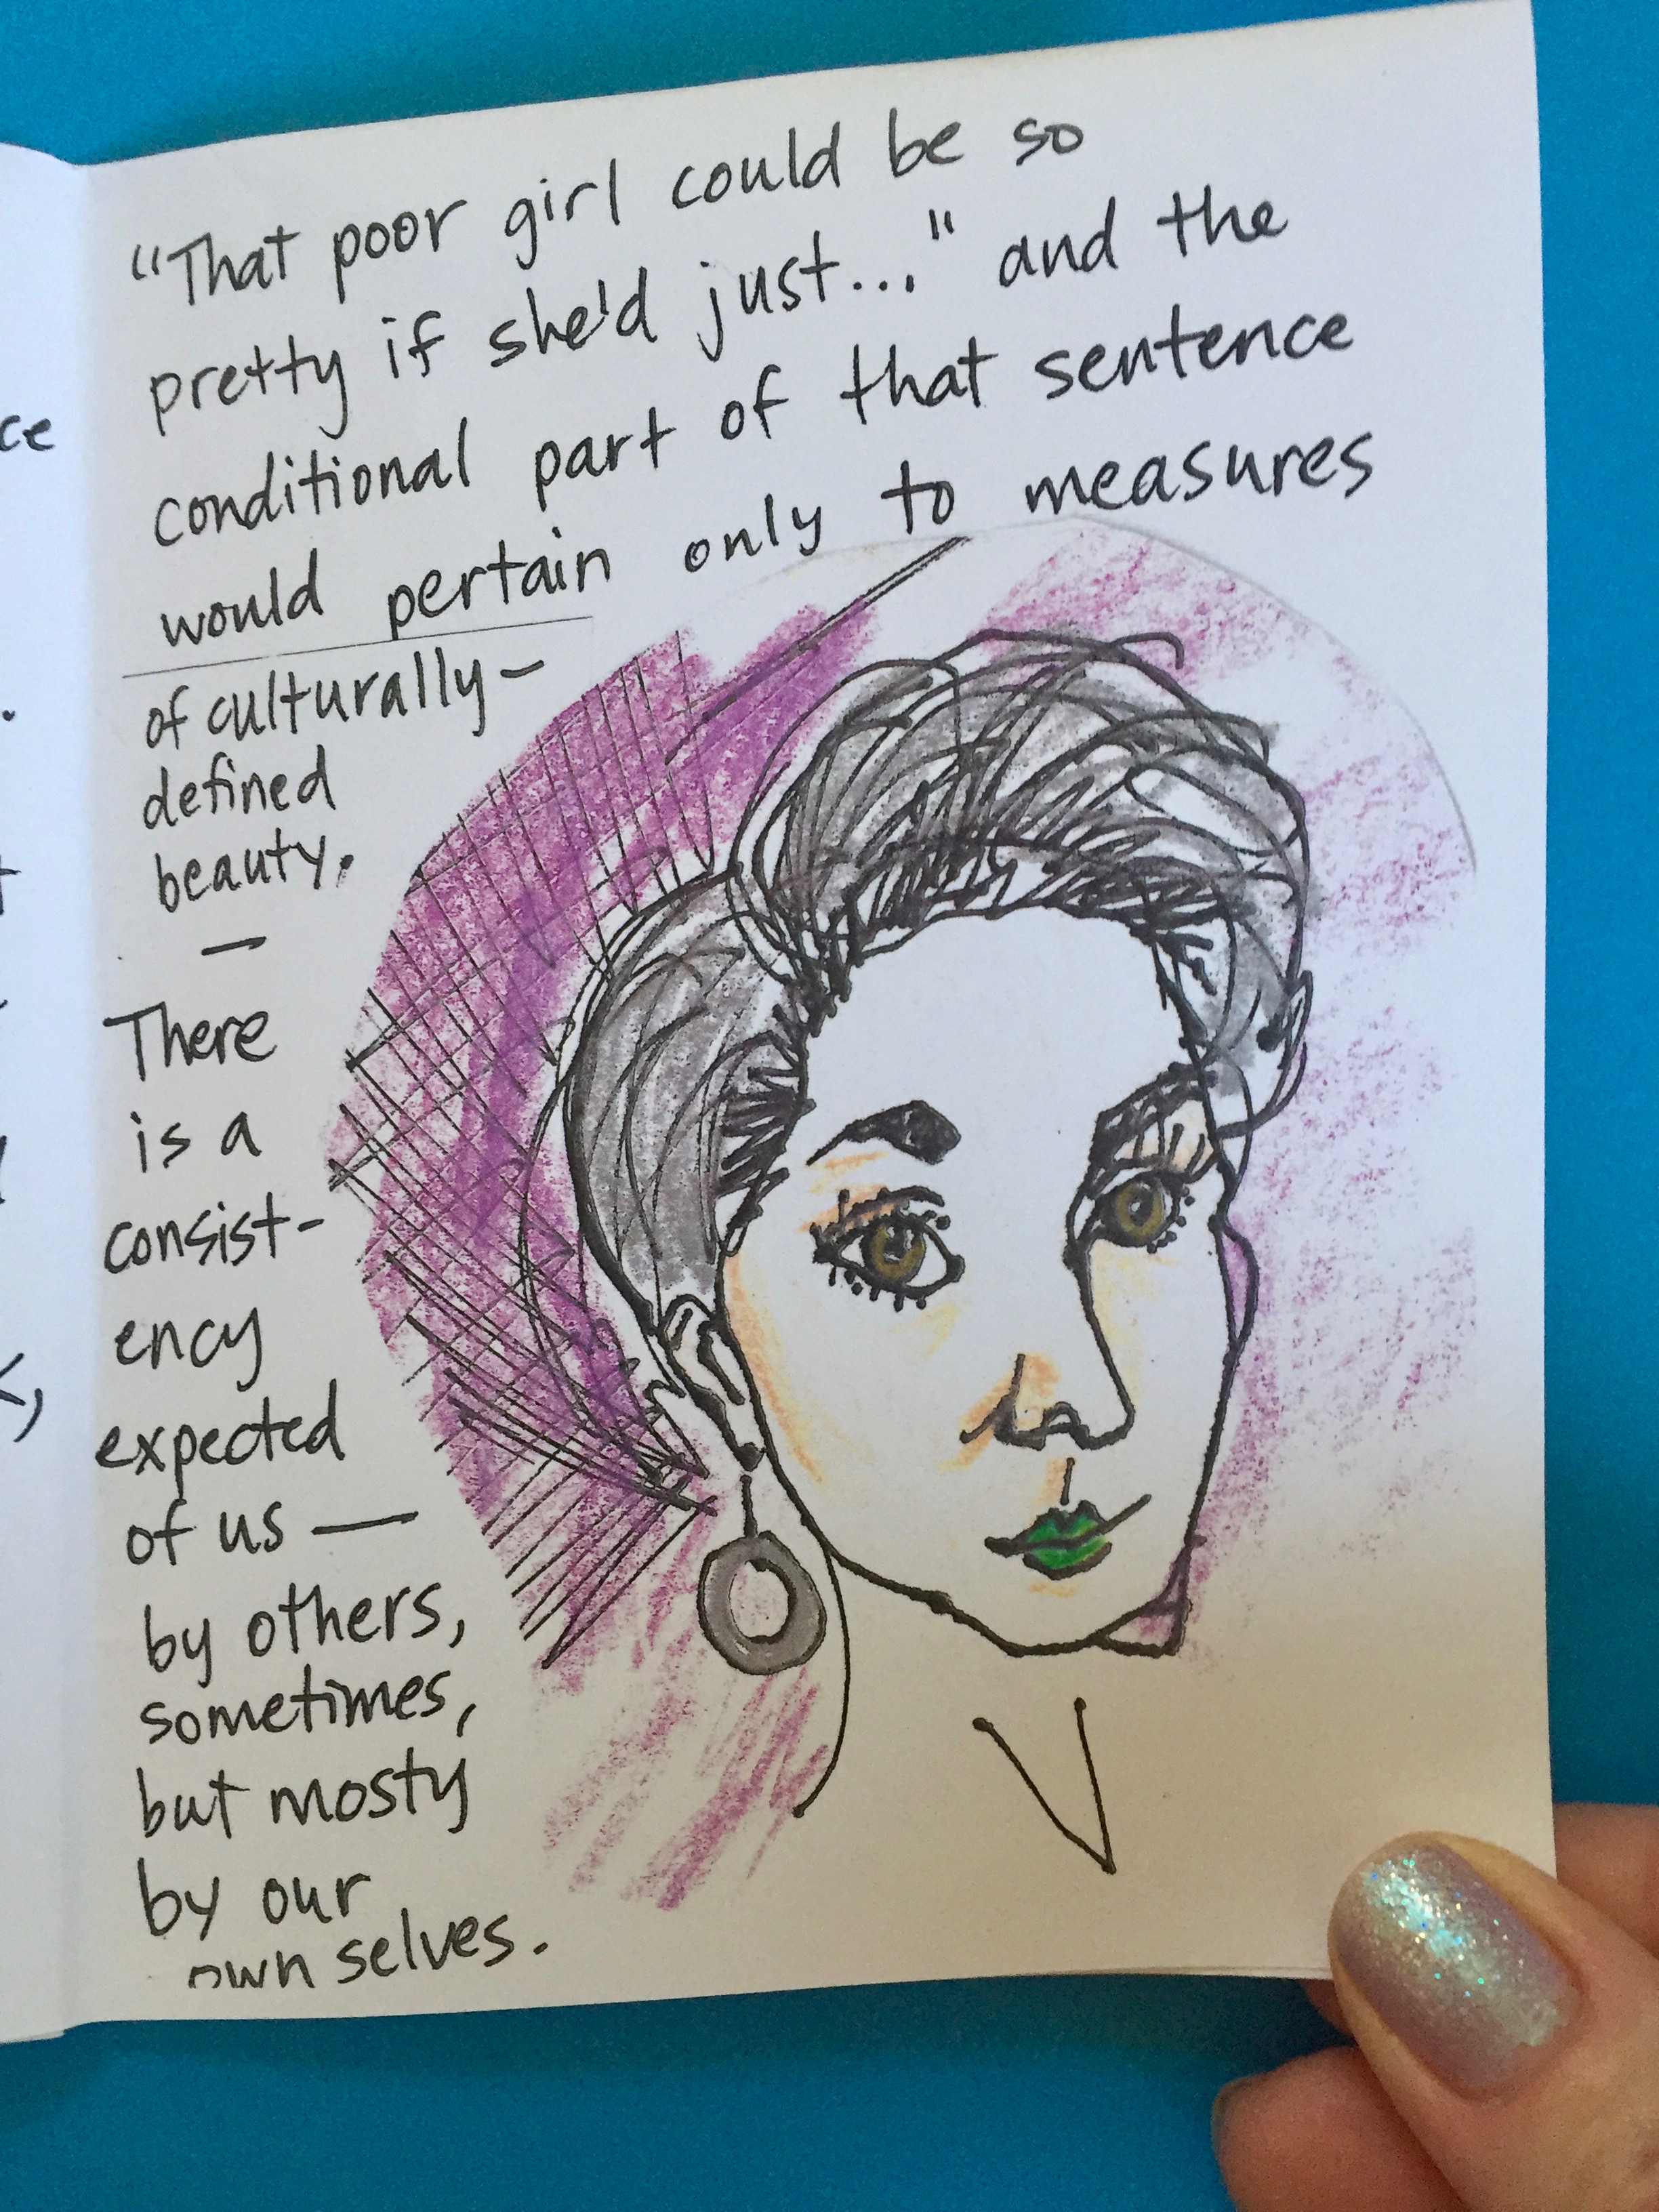 "That poor girl could be so
pretty if she'd just..." and the
conditional part of that sentence
would pertain only to measures
of culturally-
defined
beauty.
—
There
is a
consist-
ency
expected
of us —
by others,
sometimes,
but mosty
by our
own selves.
ce